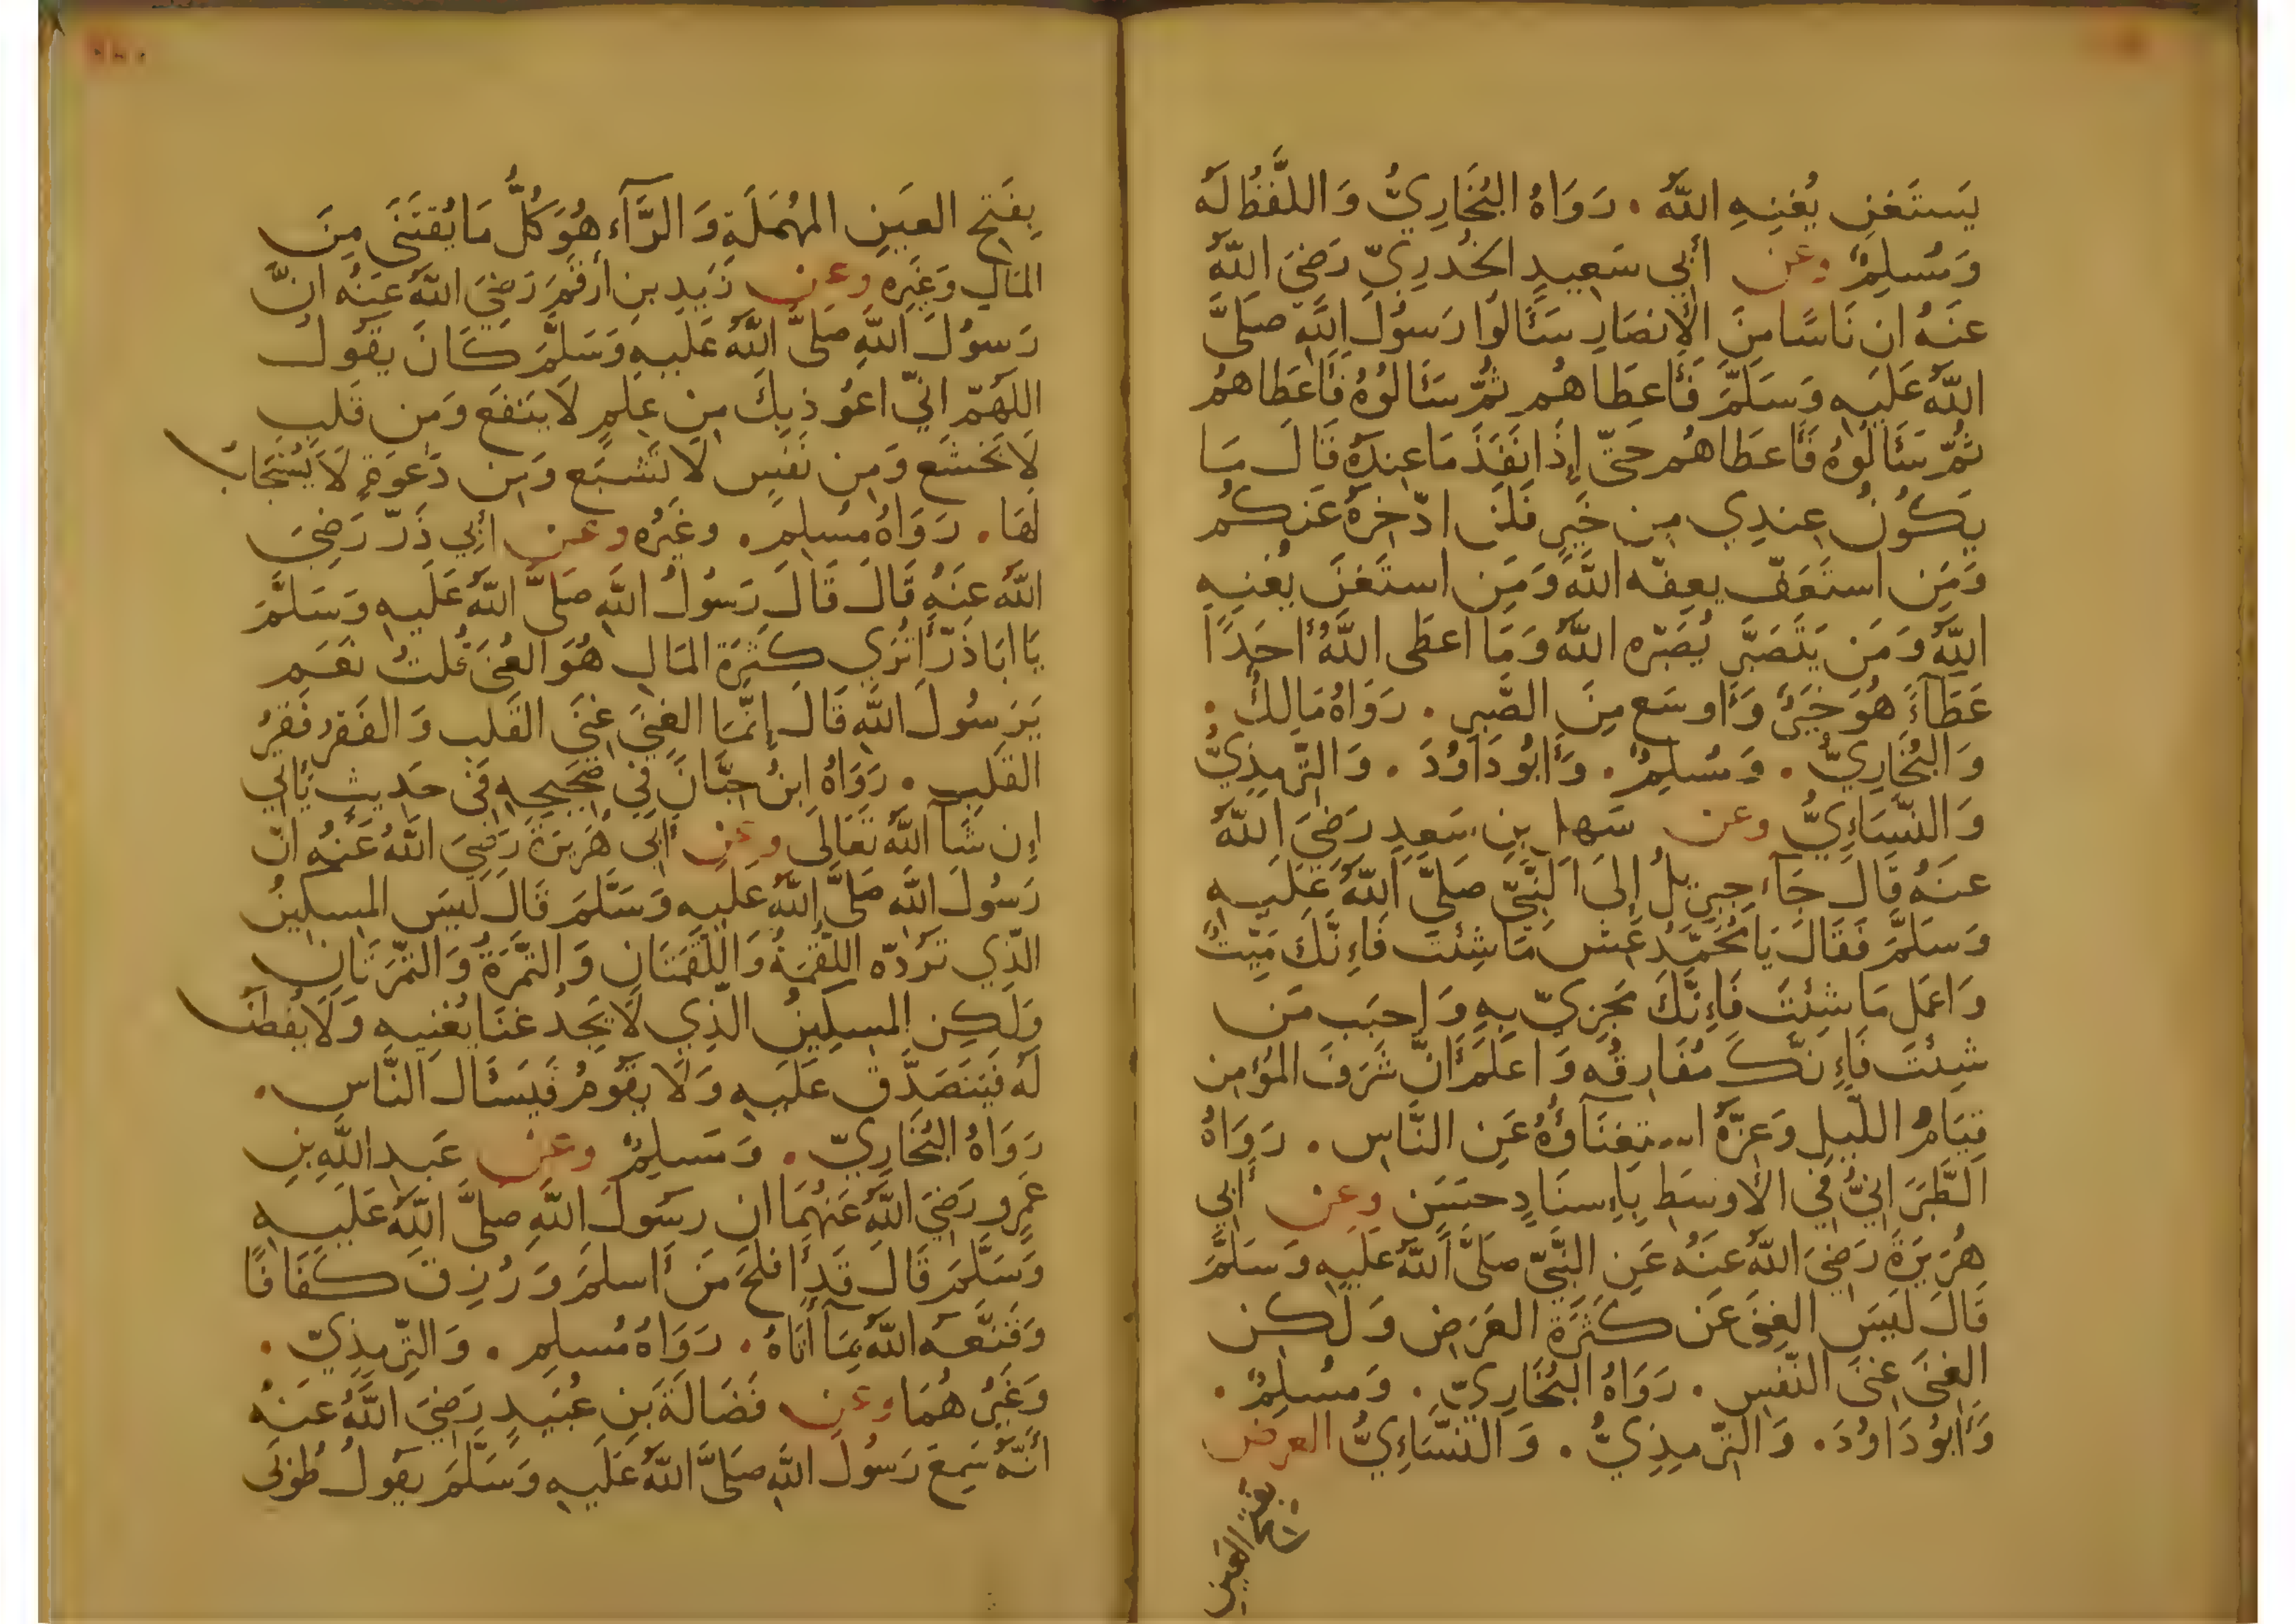 يَستَغنِ يُغنِهِ اللّٰهُ . رَوَاهُ البُخَارِيُّ وَاللَّفظُ لَهُ
وَمُسْلِمٌ وعن أبي سَعِيدٍ الخُدرِيّ رَضِيَ اللّٰهُ
عَنهُ ان نَاسًا مِنَ الأَنصَارِ سَئَالُوا رَسُولَ اللّٰهِ صَلَّى
اللّٰهُ عَلَيهِ وَسَلَّمَ فَأَعطَاهُم ثُمّ سَئَالُوهُ فَأَعطَاهُم
ثُمّ سَئَالُوهُ فَأَعطَاهُم حَتّى إِذَا نَفَذَ مَا عِندَهُ قَالَ مَا
يَكُونُ عِندِي مِن خَيرٍ فَلَن ادّخِرَهُ عَنكُم
وَمَن استَعَفّ يعِفّه اللّٰهُ وَمَن استَغنَ يُغنِهِ
اللّٰهُ وَمَن يَتَصَبَّر يُصَبّره اللّٰهُ وَمَا اعطَى اللّٰهُ أحَدًا
عَطَآءً هُوَ خَيرٌ وَأَوسَع مِنَ الصَّبرِ . رَوَاهُ مَالِكٌ .
وَالبُخَارِيُّ . وَمُسْلِمٌ . وَأَبُو دَاوُدَ . وَالتِّرمِذِيُّ
وَالنَّسَاءِيُّ وعن سَهلِ بنِ سَعدٍ رَضِيَ اللّٰهُ
عَنهُ قَالَ جَآءَ جِبرِيلُ إِلَى النَّبِيّ صَلَّى اللّٰهُ عَلَيهِ
وَسَلَّمَ فَقَالَ يَا مُحَمَّدُ عِش مَا شِئتَ فَاءِنَّكَ مَيّتٌ
وَاعمَل مَا شِئتَ فَاءِنَّكَ مَجزِيّ بِهِ وَاحبَب مَن
شِئتَ فَإِنَّكَ مُفَارِقُه وَاعلَم أَنَّ شَرَفَ المؤمِن
قِيَامُ اللّيلِ وَعِزَّهُ استِغنَآؤُهُ عَنِ النَّاسِ . رَوَاهُ
الطَّبَرَانِيُّ فِي الأَوسَطِ بِاءِسنَادٍ حسَنٍ وعن أَبي
هُرَيرَةَ رَضِيَ اللّٰهُ عَنهُ عَنِ النَّبِيّ صَلَّى اللّٰهُ عَلَيهِ وَسَلَّمَ
قَالَ لَيسَ الغِنَى عَن كَثرَةِ العَرَضِ وَلَكِن
الغِنَى غِنَى النّفسِ . رَوَاهُ البُخَارِيّ . وَمُسْلِمٌ .
وَأَبُو دَاوُدَ . وَالتِّرمِذِيُّ . وَالنَّسَاءِيُّ العرض
بفتح العين
بِفَتحِ العَينِ المُهمَلَةِ وَالرَّآءِ هُوَ كُلُّ مَا يُقتَنَى مِنَ
المَالِ وَغَيرِهِ وعن زَيدِ بنِ أَرقَمَ رَضِيَ اللّٰهُ عَنهُ انَّ
رَسُولَ اللّٰهِ صَلَّى اللّٰهُ عَلَيهِ وَسَلَّمَ كَانَ يقُولُ
اللّهُمّ انِّي اعُوذ بِكَ مِن عِلمٍ لَا يَنفَع وَمِن قَلبٍ
لَا يَخشَع وَمِن نَفسٍ لَا تَشبَع وَمِن دَعوَةٍ لَا يُستَجَابُ
لَهَا . رَوَاهُ مُسلِم . وغَيرُه وعن أَبِي ذَرّ رَضِيَ
اللّٰهُ عَنهُ قَالَ قَالَ رَسُولُ اللّٰهِ صَلَّى اللّٰهُ عَلَيهِ وَسَلَّمَ
يَا ابَا ذَرّ أَتُرَى كَثرَةَ المَالِ هُوَ الغِنَى قُلتُ نَعَم
يَرَسُولَ اللّٰهِ قَالَ إِنَّمَا الغِنَى غِنَى القَلبِ وَالفَقرُ فَقرُ
القَلبِ . رَوَاهُ ابنُ حِبَّانَ فِي صَحِيحِهِ فَى حَدِيثٍ يَأتِي
اِن شَآ اللّٰهُ تَعَالَى وعن أبِى هُرَيرَةَ رَضِيَ اللّٰهُ عَنهُ انّ
رَسُولَ اللّٰهِ صَلَّى اللّٰهُ عَلَيهِ وَسَلَّمَ قَالَ لَيسَ المِسكِينُ
الّذِي تَرُدّه اللّقمَةُ وَاللّقمَتَانِ وَالتَّمرَةُ وَالتَّمرَتَانِ
وَلَكِن المِسكِينُ الّذِي لَا يَجِدُ غنَا يُغنِيهِ وَلَا يُفطَنُ
لَه فَيَتَصَدَّق عَلَيهِ وَلَا يقُومُ فَيَسئَالَ النَّاس .
رَوَاهُ البُخَارِيّ . وَمُسلِمٌ وعن عَبدِ اللّٰهِ بنِ
عَمرٍو رَضِيَ اللّٰهُ عَنهُمَا ان رسُولَ اللّٰهِ صَلَّى اللّٰهُ عَلَيهِ
وَسَلَّمَ قَالَ قَد أَفلَحَ مَن أَسلَمَ وَرُزِقَ كَفَافًا
وَقَنَّعَه اللّٰهُ بِمَا آتَاهُ . رَوَاهُ مُسلِم . وَالتِّرمِذِيّ .
وَغَيرُ هُمَا وعن فَضَالَةَ بنِ عُبَيدٍ رَضِيَ اللّٰهُ عَنهُ
أَنَّهُ سَمِعَ رَسُولَ اللّٰهِ صَلَّى اللّٰهُ عَلَيهِ وَسَلَّمَ يقُولُ طُوبَى